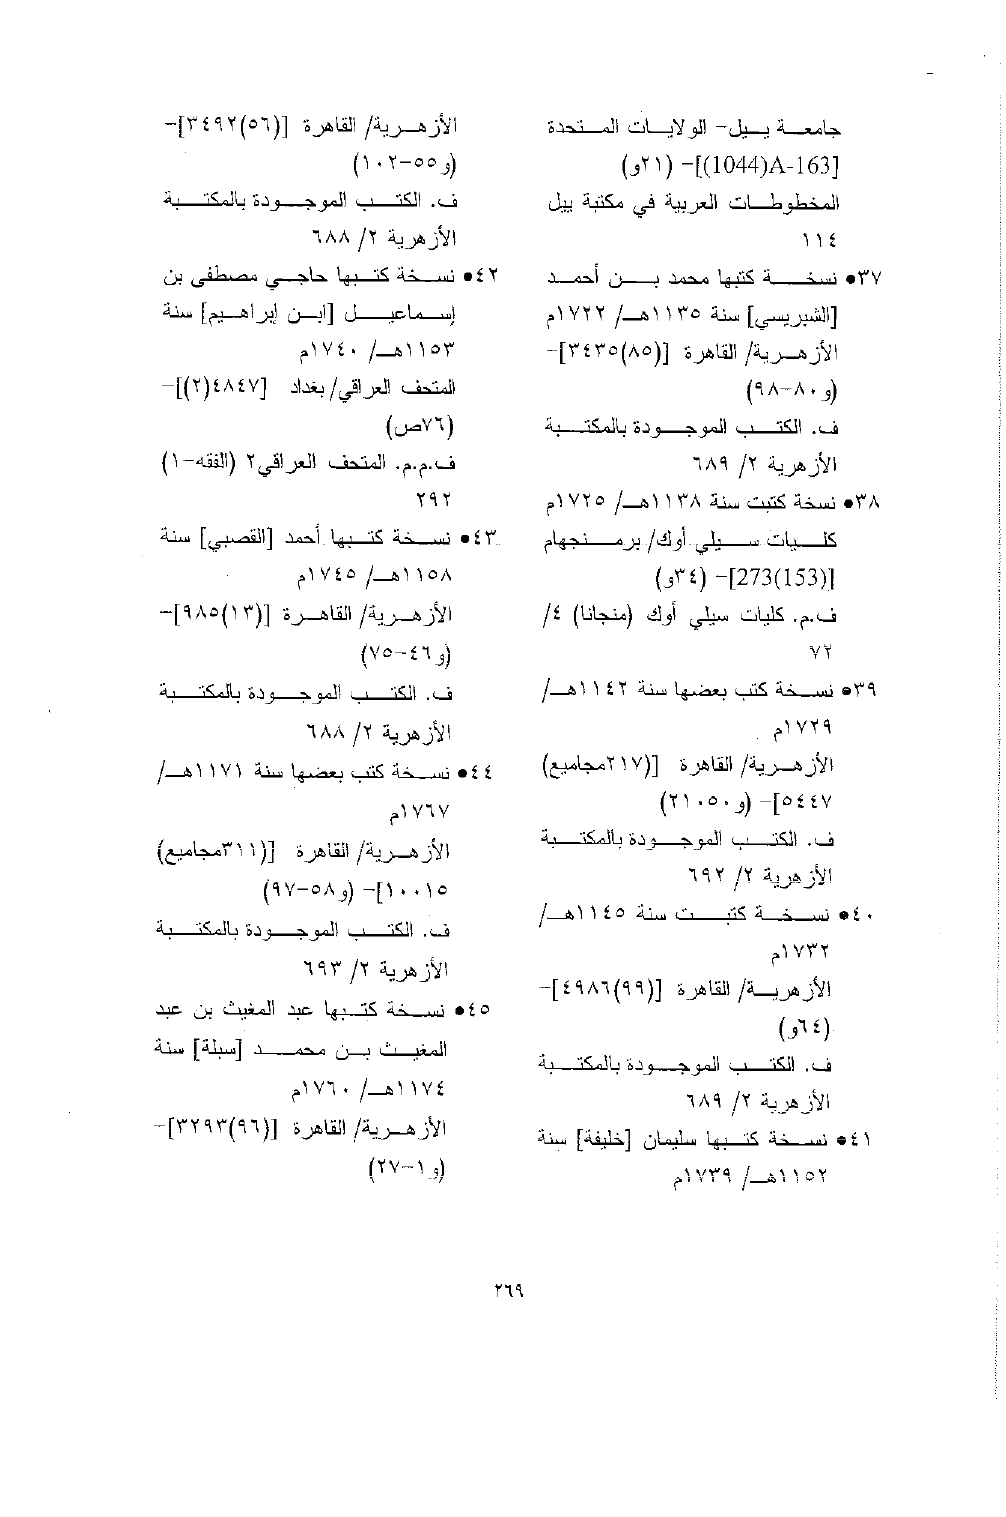 جامعة ييل- الولايات المتحدة
[1044)A-163)]- (٢١و)
المخطوطات العربية في مكتبة ييل
١١٤
٣٧• نسخة كتبها محمد بن أحمد
[الشبريسي] سنة ١١٣٥هـ/ ١٧٢٢م
الأزهرية/ القاهرة [(٨٥)٣٤٣٥]-
(و٨٠-٩٨)
ف. الكتب الموجودة بالمكتبة
الأزهرية ٢/ ٦٨٩
٣٨• نسخة كتبت سنة ١١٣٨هـ/ ١٧٢٥م
كليات سيلي أوك/ برمنجهام
[273(153)]- (٣٤و)
ف.م. كليات سيلي أوك (منجانا) ٤/
٧٢
٣٩• نسخة كتب بعضها سنة ١١٤٢هـ/
١٧٢٩م
الأزهرية/ القاهرة [(٢١٧مجاميع)
٥٤٤٧]- (و٢١٠٥٠)
ف. الكتب الموجودة بالمكتبة
الأزهرية ٢/ ٦٩٢
٤٠• نسخة كتبت سنة ١١٤٥هـ/
١٧٣٢م
الأزهرية/ القاهرة [(٩٩)٤٩٨٦]-
(٦٤و)
ف. الكتب الموجودة بالمكتبة
الأزهرية ٢/ ٦٨٩
٤١• نسخة كتبها سليمان [خليفة] سنة
١١٥٢هـ/ ١٧٣٩م
الأزهرية/ القاهرة [(٥٦)٣٤٩٢]-
(و٥٥-١٠٢)
ف. الكتب الموجودة بالمكتبة
الأزهرية ٢/ ٦٨٨
٤٢• نسخة كتبها حاجي مصطفى بن
إسماعيل [ابن إبراهيم] سنة
١١٥٣هـ/ ١٧٤٠م
المتحف العراقي/ بغداد [٤٨٤٧(٢)]-
(٧٦ص)
ف.م.م. المتحف العراقي٢ (الفقه-١)
٢٩٢
٤٣• نسخة كتبها أحمد [القصبي] سنة
١١٥٨هـ/ ١٧٤٥م
الأزهرية/ القاهرة [(١٣)٩٨٥]-
(و٤٦-٧٥)
ف. الكتب الموجودة بالمكتبة
الأزهرية ٢/ ٦٨٨
٤٤• نسخة كتب بعضها سنة ١١٧١هـ/
١٧٦٧م
الأزهرية/ القاهرة [(٣١١مجاميع)
١٠٠١٥]- (و٥٨-٩٧)
ف. الكتب الموجودة بالمكتبة
الأزهرية ٢/ ٦٩٣
٤٥• نسخة كتبها عبد المغيث بن عبد
المغيث بن محمد [سبلة] سنة
١١٧٤هـ/ ١٧٦٠م
الأزهرية/ القاهرة [(٩٦)٣٢٩٣]-
(و١-٢٧)
٢٦٩